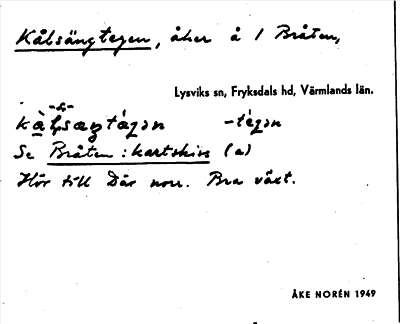 Kålsängtegen, åker å 1 Bråten,
Lysviks sn, Fryksdals hd, Värmlands län.
Se Bråten: kartskiss (a)
Hör till Där norr. Bra växt.
ÅKE NORÉN 1949